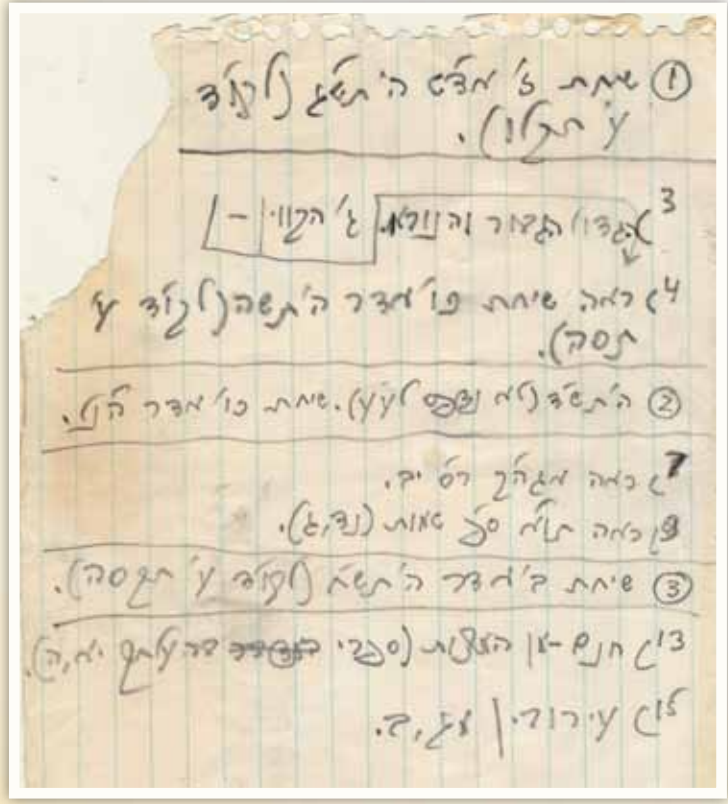 ① שיחת ז' אד"ש ה'תש"ג (לקו"ד
ע' תקלו).
3) הגדול הגבור והנורא. ג' הקווין –
4) ראה שיחת פו' אדר ה'תשה (לקו"ד ע'
תסה).
② ה'תש"ד (לא נדפס לע"ע). שיחת פו' אדר הנ"ל.
7) ראה אגה"ק רס"י יב.
9) ראה תו"א ס"פ שמות (נד,ג).
③ שיחת ב' אדר ה'תש"א (לקו"ד ע' תקסה).
13) חנם-מן המצות (ספרי בהעלתך יא,ה).
15) עירובין